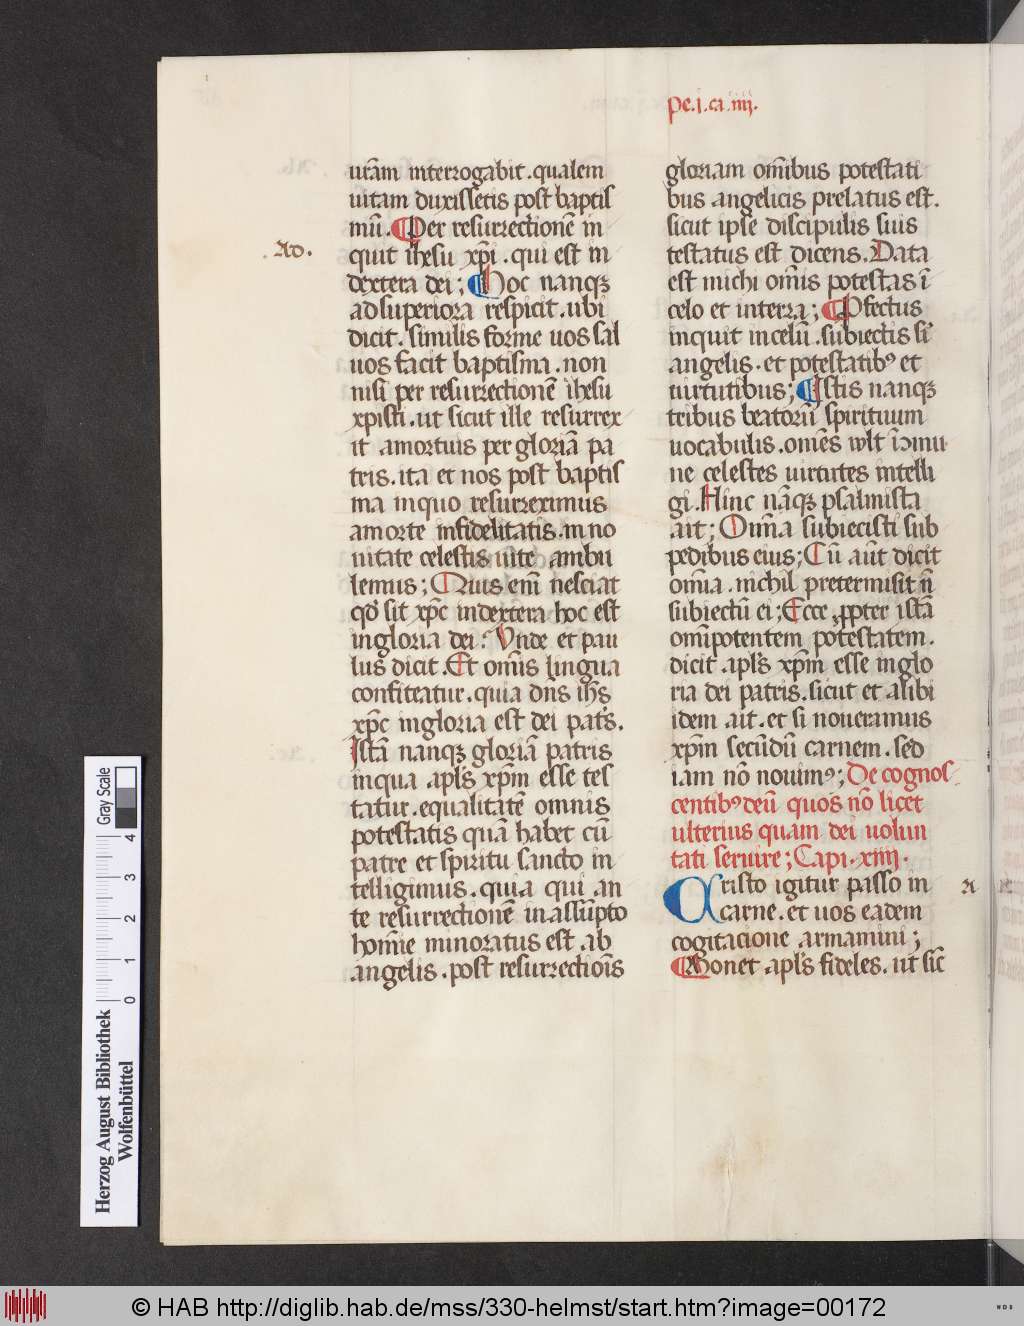 pe.i.ca.iiij.
urām interrogabit.qualem
uitam duxissetis post baptis
mū.Per resurrectionē in
Ad.
quit ihesu xp̄i.qui est in
dextera dei; Hoc nanqꝫ
ad superiora respicit.ubi
dicit.similis forme uos sal
uos facit baptisma.non
nisi per resurrectionē ihesu
xpisti.ut sicut ille resurrex
it amortuis per gloriā pa
tris.ita et nos post baptis
ma inquo resurreximus
amorte infidelitatis.in no
uitate celestis uite ambu
lemus; Quis eni᷑ nesciat
qd̄ sit xp̄c indextera hoc est
ingloria dei? Vnde et pau
lus dicit.Et om̄is lingua
confiteatur.quia dn̄s ih̄s
xp̄c ingloria est dei pat's.
Istā nanqꝫ gloriā patris
inqua apl's xp̄m esse tes
tatur.equalitatē omnis
potestatis quā habet cū
patre et spiritu sancto in
telligimus.quia qui an
te resurrectionē inassūpto
hom̄ie minoratus est ab
angelis.post resurrectiōis
gloriam om̄ibus potestati
bus angelicis prelatus est.
sicut ipse discipulis suis
testatus est dicens.Data
est michi om̄is potestas ī
celo et interra; Pfectus
inquit incelū.subiectis s'
angelis.et potestatibꝰ et
uirtutibus; Istis nanqꝫ
tribus beatorū spirituum
uocabulis.omēs wlt īↄmu
ne celestes uirtutes intelli
gi.Hinc nāqꝫ psalmista
ait; Omīa subiecisti sub
pedibus eius; Cū aūt dicit
om̄ia.nichil pretermisit ñ
subiectū ei; Ecce ꝓpter istā
om̄ipotentem potestatem.
dicit apl's xp̄m esse inglo
ria dei patris.sicut et alibi
idem ait.et si noueramus
xp̄m secūdū carnem.sed
iam nō nouimꝰ; De cognos
centibꝰ deū quos nō licet
ulterius quam dei uolun
tati seruire; Capi.xiiij.
Cristo igitur passo in
A
carne.et uos eadem
cogitacione armamini;
Monet apl's fideles.ut sic̄
Herzog August Bibliothek
Wolfenbüttel
0 1 2 3 4
Gray Scale
© HAB http://diglib.hab.de/mss/330-helmst/start.htm?image=00172